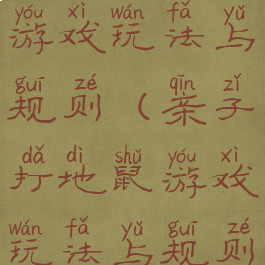 yóu xì wán fǎ yǔ
游戏玩法与
guī zé qīn zǐ
规则（亲子
dǎ dì shǔ yóu xì
打地鼠游戏
wán fǎ yǔ guī zé
玩法与规则